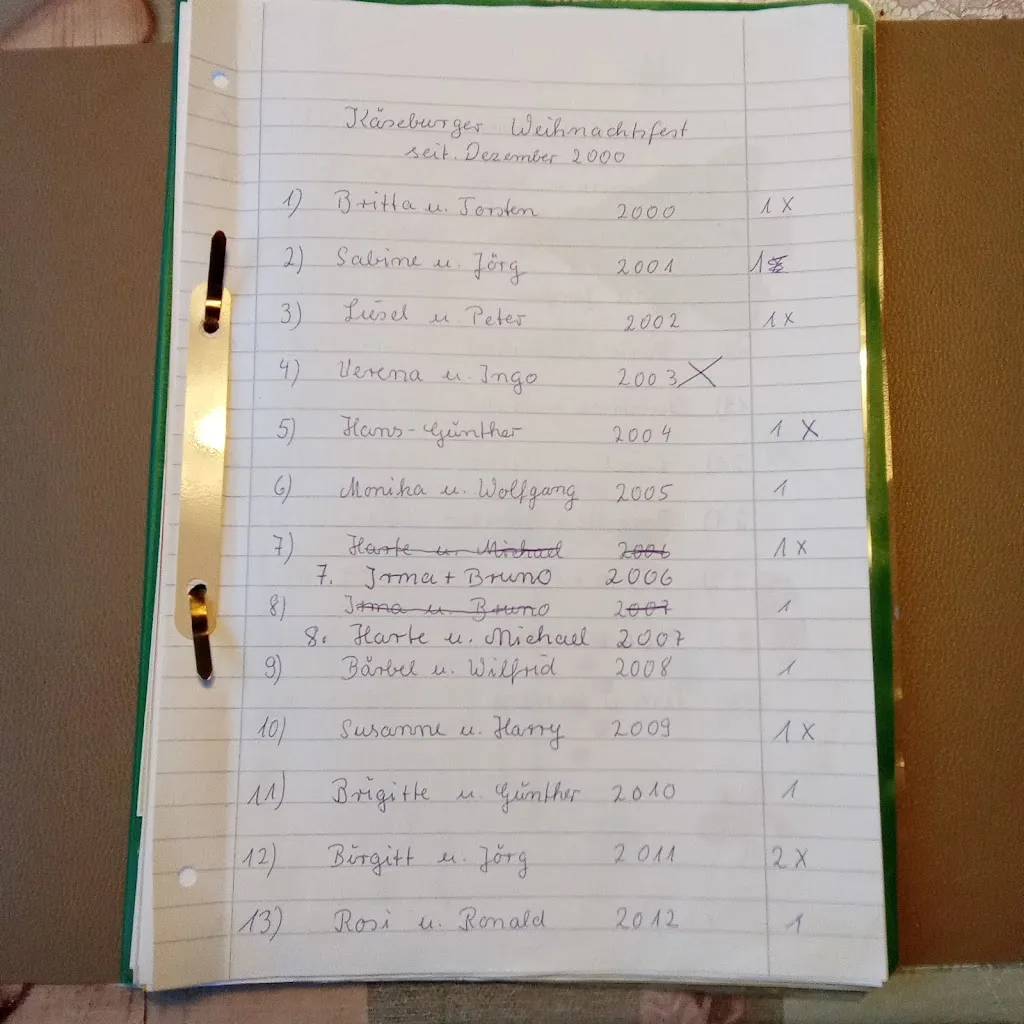 Käseburger Weihnachtsfest
seit. Dezember 2000
1) Britta u. Torsten 2000 1 X
2) Sabine u. Jörg 2001 1
3) Liesel u. Peter 2002 1 X
4) Verena u. Ingo 2003 X
5) Hans-Günther 2004 1 X
6) Monika u. Wolfgang 2005 1
7) Harte u. Michael 2006 1 X
7. Irma + Bruno 2006
8) Irma u. Bruno 2007 1
8. Harte u. Michael 2007
9) Bärbel u. Wilfrid 2008 1
10) Susanne u. Harry 2009 1 X
11) Brigitte u. Günther 2010 1
12) Birgitt u. Jörg 2011 2 X
13) Rosi u. Ronald 2012 1